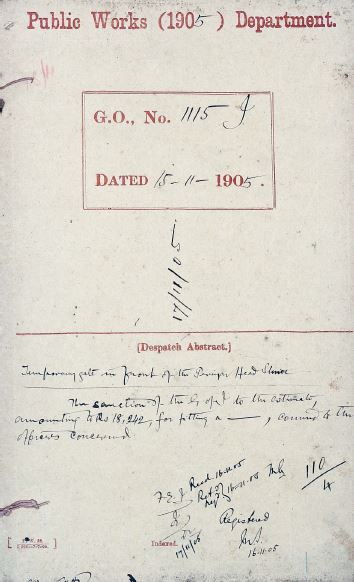 Public Works (1905) Department.
G.O., No. 1115 I
DATED 15-11-1905.
17/11/05
(Despatch Abstract.)
Temporary gate in front of the Periyar Head Sluice
The sanction of the G of I to the estimate,
amounting to Rs 18,242, for fitting a —— , conveyed to the
officers concerned
Recd. 16.11.05
16-11-05
110
Registered
16.11.05
Indexed.
17/11/05